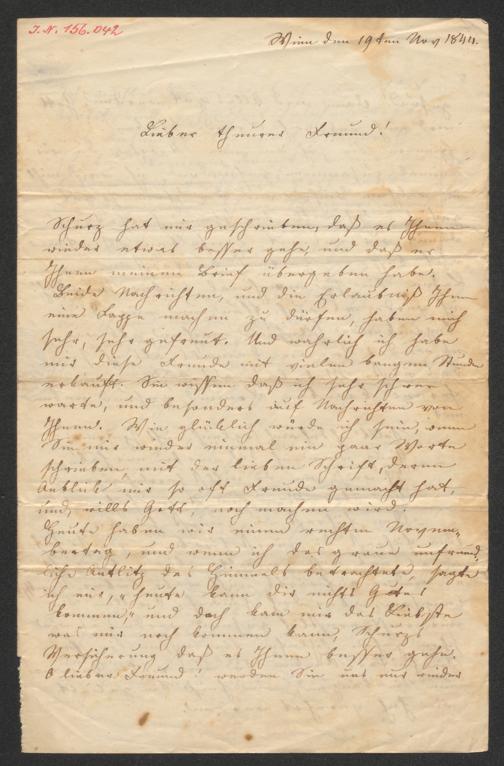 I. N. 156.042
Wien den 19ten Nov 1844.
Lieber theurer Freund!
Schurz hat mir geschrieben, daß es Ihnen
wieder etwas besser gehe, und daß er
Ihnen meinen Brief übergeben habe.
Beide Nachrichten, und die Erlaubniß Ihnen
eine Kappe machen zu dürfen, haben mich
sehr, sehr gefreut. Und wahrlich ich habe
mir diese Freude mit vielen bangen Stunden
erkauft. Sie wissen daß ich sehr schwer
warte, und besonders auf Nachrichten von
Ihnen. Wie glücklich würde ich sein, wenn
Sie mir wieder einmal ein paar Worte
schrieben, mit der lieben Schrift, deren
Anblick mir so oft Freude gemacht hat,
und, wills Gott, noch machen wird.
Heute haben wir einen rechten Novem-
bertag, und wenn ich das graue unfreund-
liche Antlitz des Himmels betrachtete, sagte
ich mir, „heute kann dir nichts Gutes
kommen,“ und doch kam mir das Liebste
was mir noch kommen kann, Schurzs
Versicherung daß es Ihnen besser gehe.
O lieber Freund! werden Sie uns nur wieder